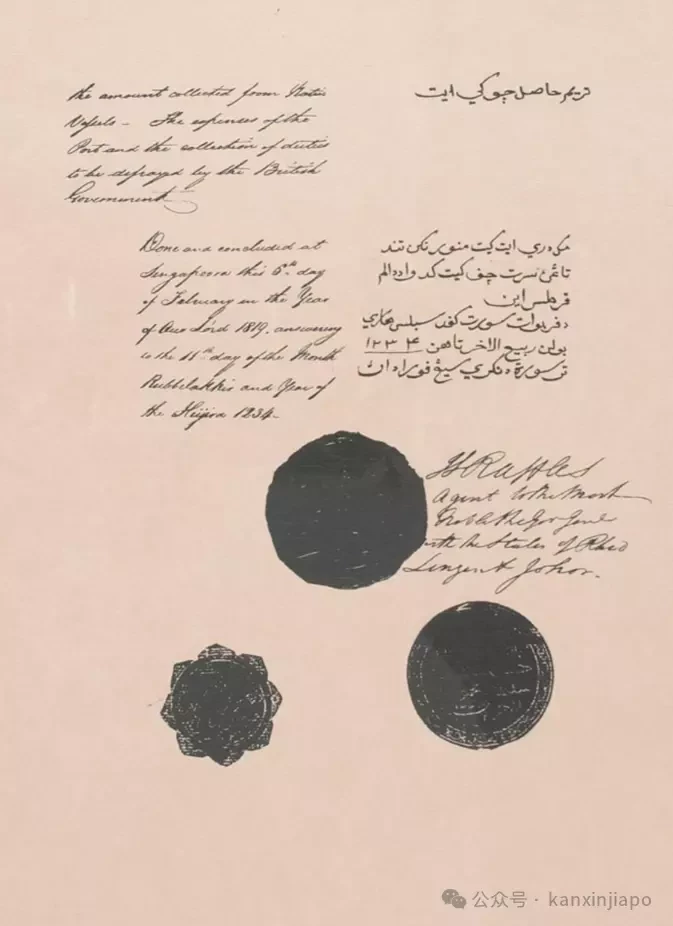 the amount collected from Native
Vessels – The expenses of the
Port and the collection of duties
to be defrayed by the British
Government
تريم حاصل چوكي ايت
Done and concluded at
Singapoora this 6th day
of February in the Year
of Our Lord 1819, answering
to the 11th day of the Month
and Year of
the Hejira 1234 –
مكدري ايت كيت
تاڠن سرت چڤ كيت
دڤربوات سورت
بولن ربيع الاخر تاهن ١٢٣٤
ترسورة دنكري سيڠڤورا
TS Raffles
Agent to the Most
Noble the Gov Genl
with the States of Rhio
Lingen & Johor.
公众号 · kanxinjiapo